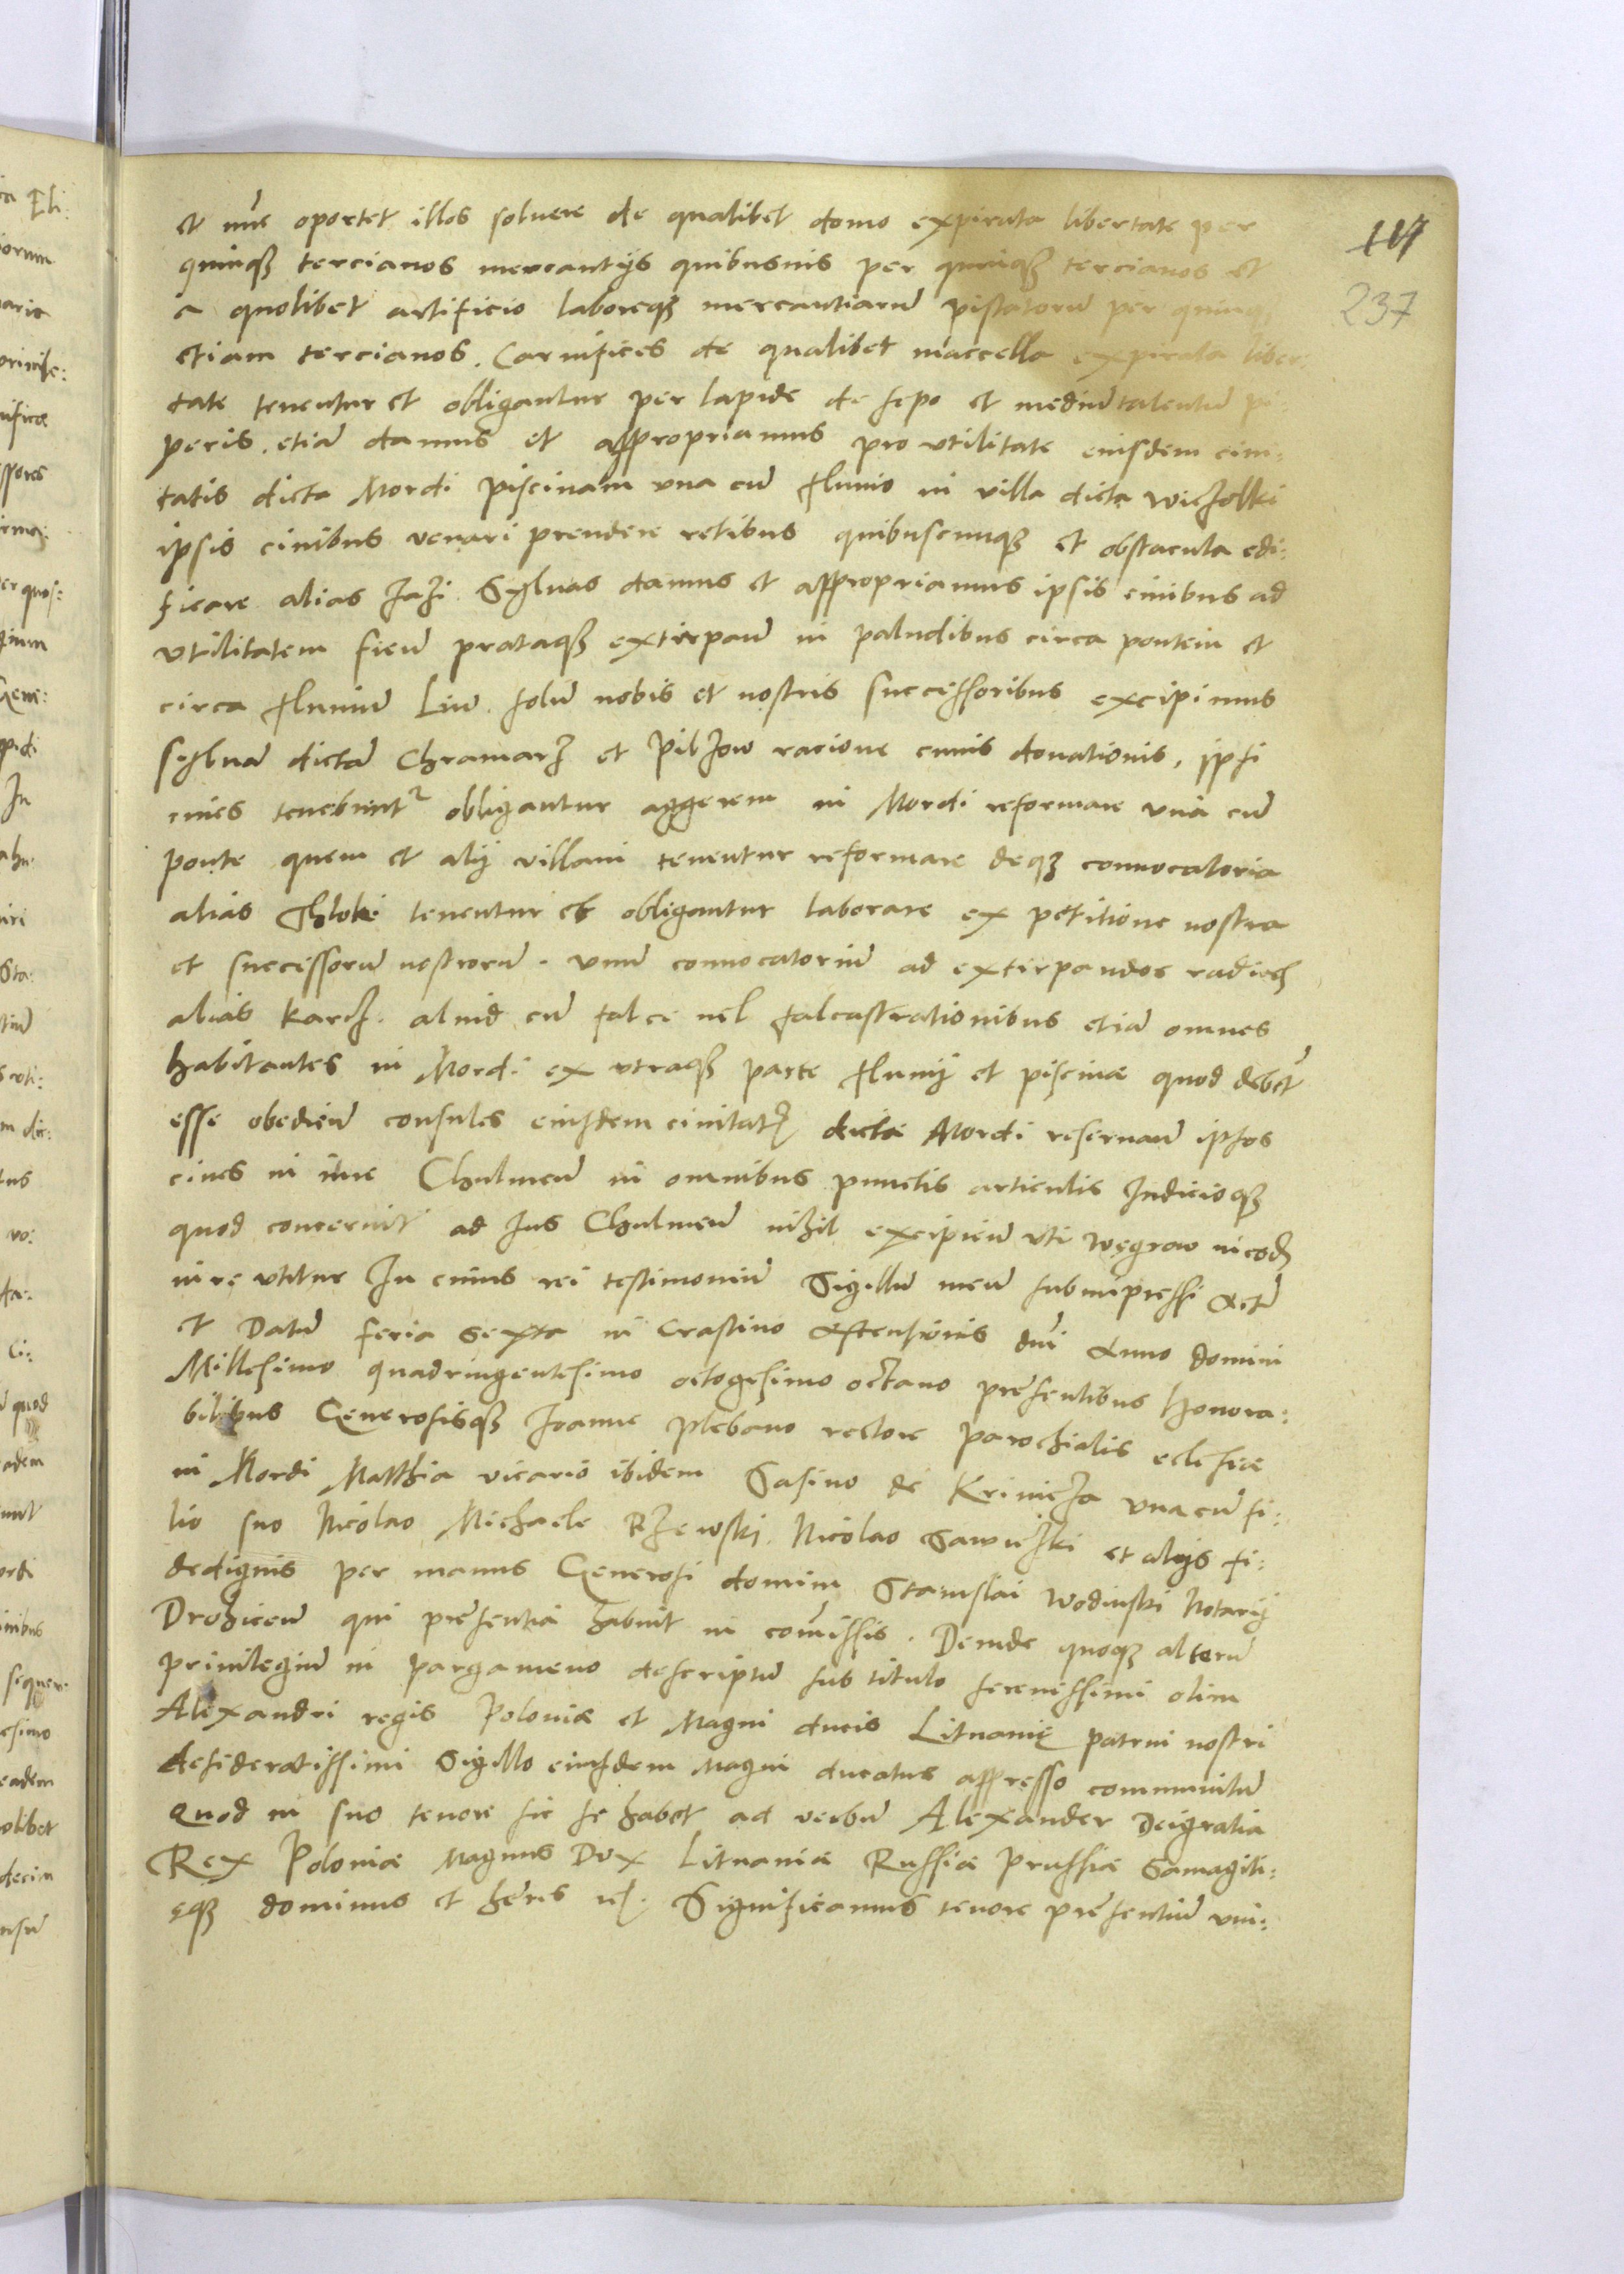 et nu̅c oportet illos soluere de qualibet domo expirata libertate per
quinqꝫ tercianos mercantijs quibusuis per quinqꝫ tercianos et
a quolibet artificio laboreqꝫ mercantiaru̅ pistatoru̅ per quinqꝫ
etiam tercianos. Carnifices de qualibet maccella expirata liber:
tate tenentur et obligantur per lapide de sepo et mediu̅ talentu̅ pi:
peris. etia̅ damus et appropriamus pro vtilitate eiusdem ciui:
tatis dicta Mordi piscinam vna cu̅ fluuio in villa dicta
ipsis ciuibus venari prendere retibus quibuscunqꝫ et obstacula edi:
ficare alias Jazi. Syluas damus et appropriamus ipsis ciuibus ad
vtilitatem pratáqꝫ in paludibus circa pontem et
circa fluuiu̅ Liw. solu̅ nobis et nostris successoribus excipimus
sylua̅ dicta̅ Chramarz et Pilzow racione cuius donationis, ipsi
ciues tenebunt obligantur aggerem in Mordi reformare vna cu̅
ponte quem et alij villani tenentur reformare deqꝫ conuocatoria
alias thloki tenentur et obligantur laborare ex petitione nostra
et successoru̅ nostroru̅. vnu̅ conuocatoriu̅ ad extirpandos
alias karcz. aliud cu̅ falce uel falcastrationibus etia̅ omnes
habitantes in Mordi ex vtraqꝫ parte fluuij et piscinæ quod debet
esse consules eiusdem ciuitatis dictæ Mordi ipsos
ciues in iure Chulmen̅ in omnibus punctis articulis Judicioqꝫ
quod concernit ad Jus Chulmen̅ nihil vti Węgrow
iure vtitur In cuius rei testimoniu̅ Sigillu̅ meu̅ subimpressi Actu̅
et Datu̅ feria sexta in Crastino Ascensionis dn̅i Anno domini
Millesimo quadringentesimo octogesimo octauo presentibus Honora:
bilibus Generosisqꝫ Joanne Plebano rectore parochialis eclesiæ
in Mordi Matthia vicario ibidem Sasino de Krinicza vna cu̅ fi:
lio suo Nicolao Michaele Rzewski. Nicolao Sawiczki et alijs fi:
dedignis per manus Generosi domini Stanislai Wodinski Notarij
Drohicen̅ qui presentia̅ habuit in com̅issis. Deinde quoqꝫ alteru̅
priuilegiu̅ in pargameno descriptu̅ sub titulo serenissimi olim
Alexandri regis Poloniæ et Magni ducis Lituanię patrui nostri
desideratissimi Sigillo eiusdem Magni ducatus appresso communitu̅
Quod in suo tenore sic se habet ad verbu̅ Alexander Dei gratia
Rex Poloniæ Magnus Dux Lituaniæ Russiæ Prussiæ Samagiti:
ęqꝫ dominus et heres Significamus tenore presentiu̅ vni:
117
237